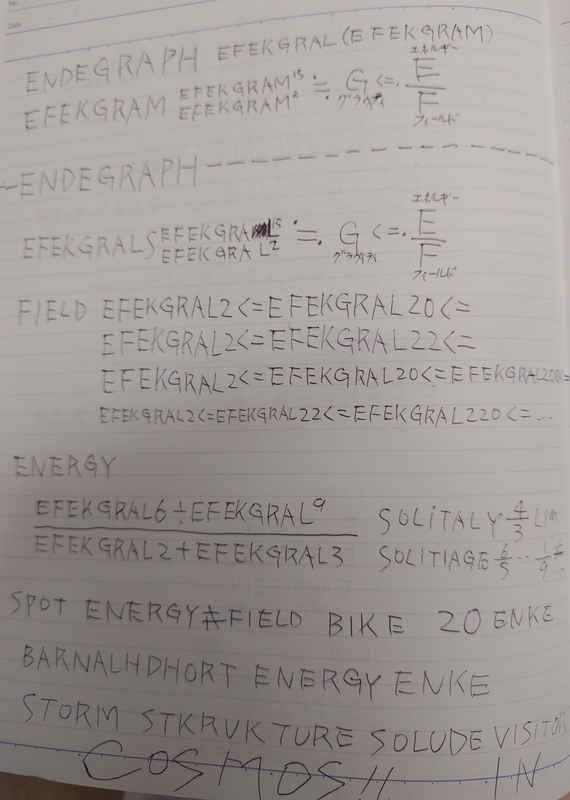 No.
Date
ENDEGRAPH EFEKGRAL(EFEKGRAM)
EFEKGRAM EFEKGRAM¹⁵ ≒ G <=. E エネルギー
EFEKGRAM² グラヴィティ F フィールド
ENDEGRAPH
EFEKGRALS EFEKGRAL¹⁵ ≒. G <=. E エネルギー
EFEKGRAL² グラヴィティ F フィールド
FIELD EFEKGRAL2<=EFEKGRAL20<=
EFEKGRAL2<=EFEKGRAL22<=
EFEKGRAL2<=EFEKGRAL20<=EFEKGRAL200<=
EFEKGRAL2<=EFEKGRAL22<=EFEKGRAL220<=...
ENERGY
EFEKGRAL6÷EFEKGRAL⁹ SOLiTALY 4/3
EFEKGRAL2+EFEKGRAL3 SOLITIAGE 6/5 ... 1/9
SPOT ENERGY≠FIELD BIKE 20 ENKE
BARNALHDHORT ENERGY ENKE
STORM STKRUKTURE SOLUDE VISITOR
COSMOS!! IN